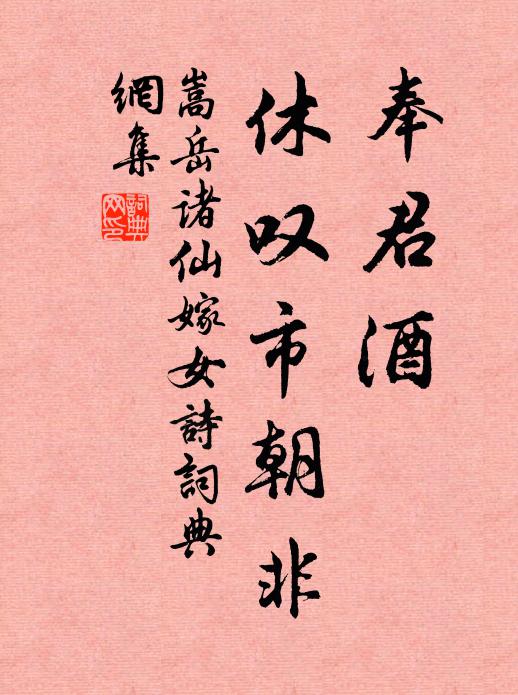 奉君酒
休叹市朝非
嵩岳诸仙嫁女詩詞典
網集
詞典網印